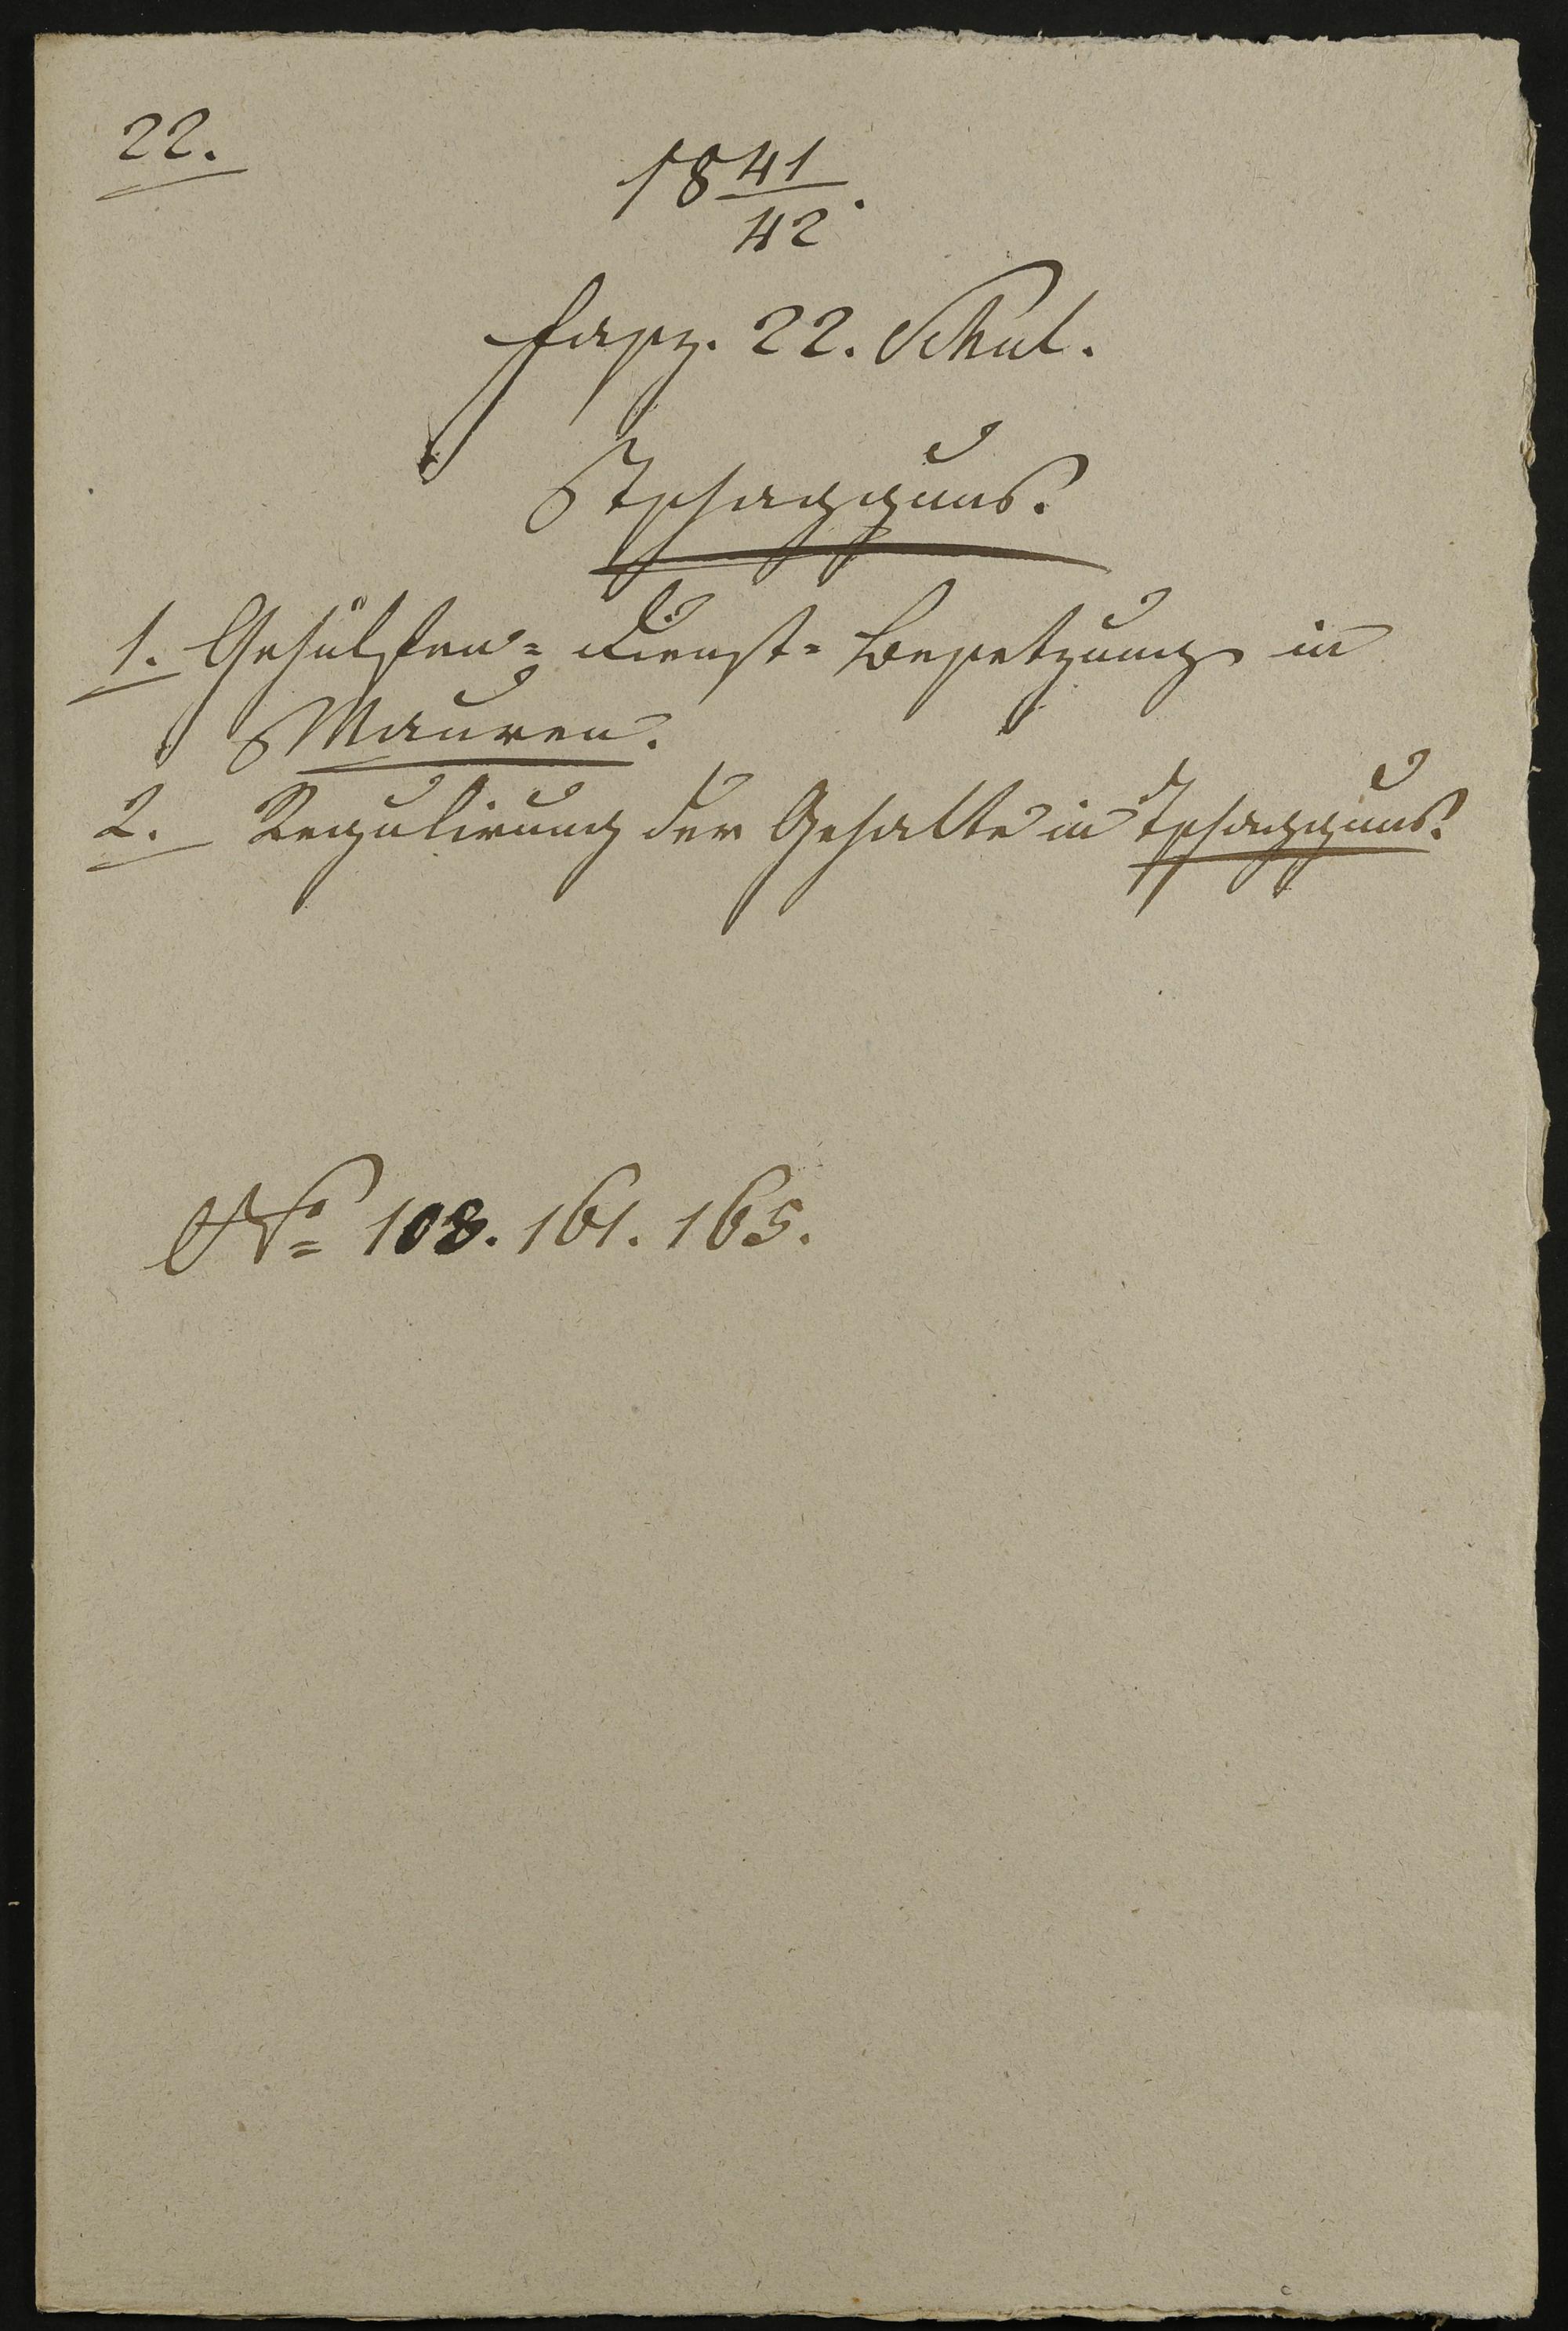 22.
18 41/42.
Fasz. 22. Schul.
Tschagguns.
1. Gehülfen= Dienst= Besetzung in
Mauren.
2. Regulirung der Gehalte in Tschagguns.
No 108. 161. 165.